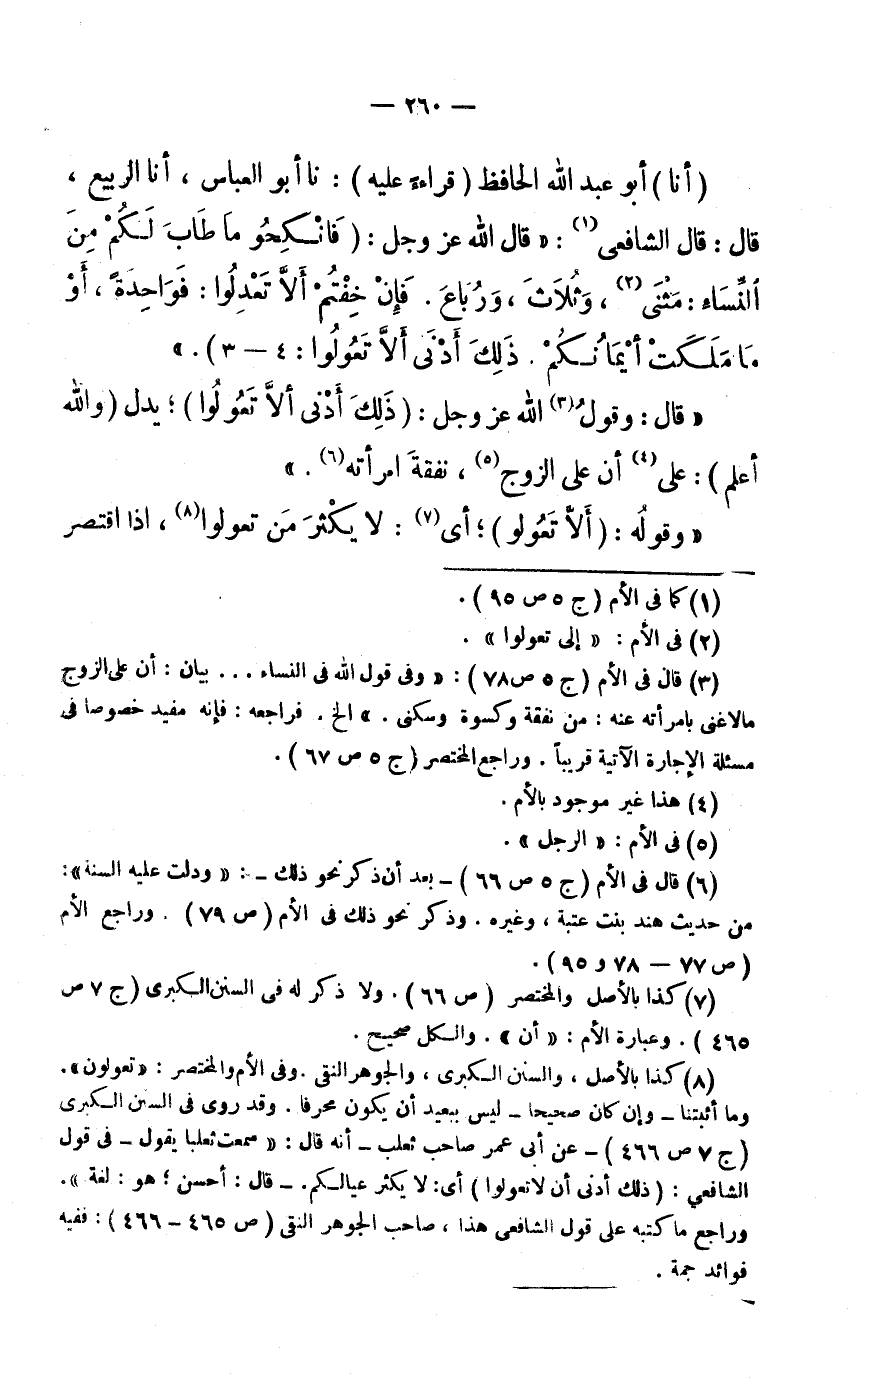 — ٢٦٠ —
(أنا) أبو عبد الله الحافظ (قراءة عليه) : نا أبو العباس ، أنا الربيع ،
قال : قال الشافعى(١) : « قال الله عز وجل : (فَانْكِحُو مَا طَابَ لَكُمْ مِنَ
ٱلنِّسَاءِ : مَثْنَى(٢) ، وَثُلَاثَ ، وَرُبَاعَ . فَإِنْ خِفْتُمْ أَلاَّ تَعْدِلُوا : فَوَاحِدَةً ، أَوْ
مَا مَلَكَتْ أَيْمَانُكُمْ . ذَلِكَ أَدْنَى أَلاَّ تَعُولُوا : ٤ — ٣) . »
« قال : وقولُ(٣) الله عز وجل : (ذَلِكَ أَدْنى أَلاَّ تَعُولُوا) ؛ يدل (والله
أعلم) : على(٤) أن على الزوج(٥) ، نفقةَ امرأته(٦) . »
« وقولُه : (أَلاَّ تَعُولُو) ؛ أى(٧) : لا يكْثرَ مَن تعولوا(٨) ، اذا اقتصر
(١) كما فى الأم (ج ٥ ص ٩٥) .
(٢) فى الأم : « إلى تعولوا » .
(٣) قال فى الأم (ج ٥ ص ٧٨) : « وفى قول الله فى النساء ... بيان : أن على الزوج
مالاغنى بامرأته عنه : من نفقة وكسوة وسكنى . » الخ . فراجعه : فإنه مفيد خصوصا فى
مسئلة الإجارة الآتية قريباً . وراجع المختصر (ج ٥ ص ٦٧) .
(٤) هذا غير موجود بالأم .
(٥) فى الأم : « الرجل » .
(٦) قال فى الأم (ج ٥ ص ٦٦) – بعد أن ذكر نحو ذلك – : « ودلت عليه السنة » :
من حديث هند بنت عتبة ، وغيره . وذكر نحو ذلك فى الأم (ص ٧٩) . وراجع الأم
(ص ٧٧ — ٧٨ و ٩٥) .
(٧) كذا بالأصل والمختصر (ص ٦٦) . ولا ذكر له فى السنن الكبرى (ج ٧ ص
٤٦٥) . وعبارة الأم : « أن » . والكل صحيح .
(٨) كذا بالأصل ، والسنن الكبرى ، والجوهر النقى . وفى الأم والمختصر : « تعولون » .
وما أثبتنا – وإن كان صحيحا – ليس ببعيد أن يكون محرفا . وقد روى فى السنن الكبرى
(ج ٧ ص ٤٦٦) – عن أبى عمر صاحب ثعلب – أنه قال : « سمعت ثعلبا يقول – فى قول
الشافعي : (ذلك أدنى أن لاتعولوا) أى : لا يكثر عيالكم . – قال : أحسن ؛ هو : لغة » .
وراجع ما كتبه على قول الشافعى هذا ، صاحب الجوهر النقى (ص ٤٦٥ – ٤٦٦) : ففيه
فوائد جمة .